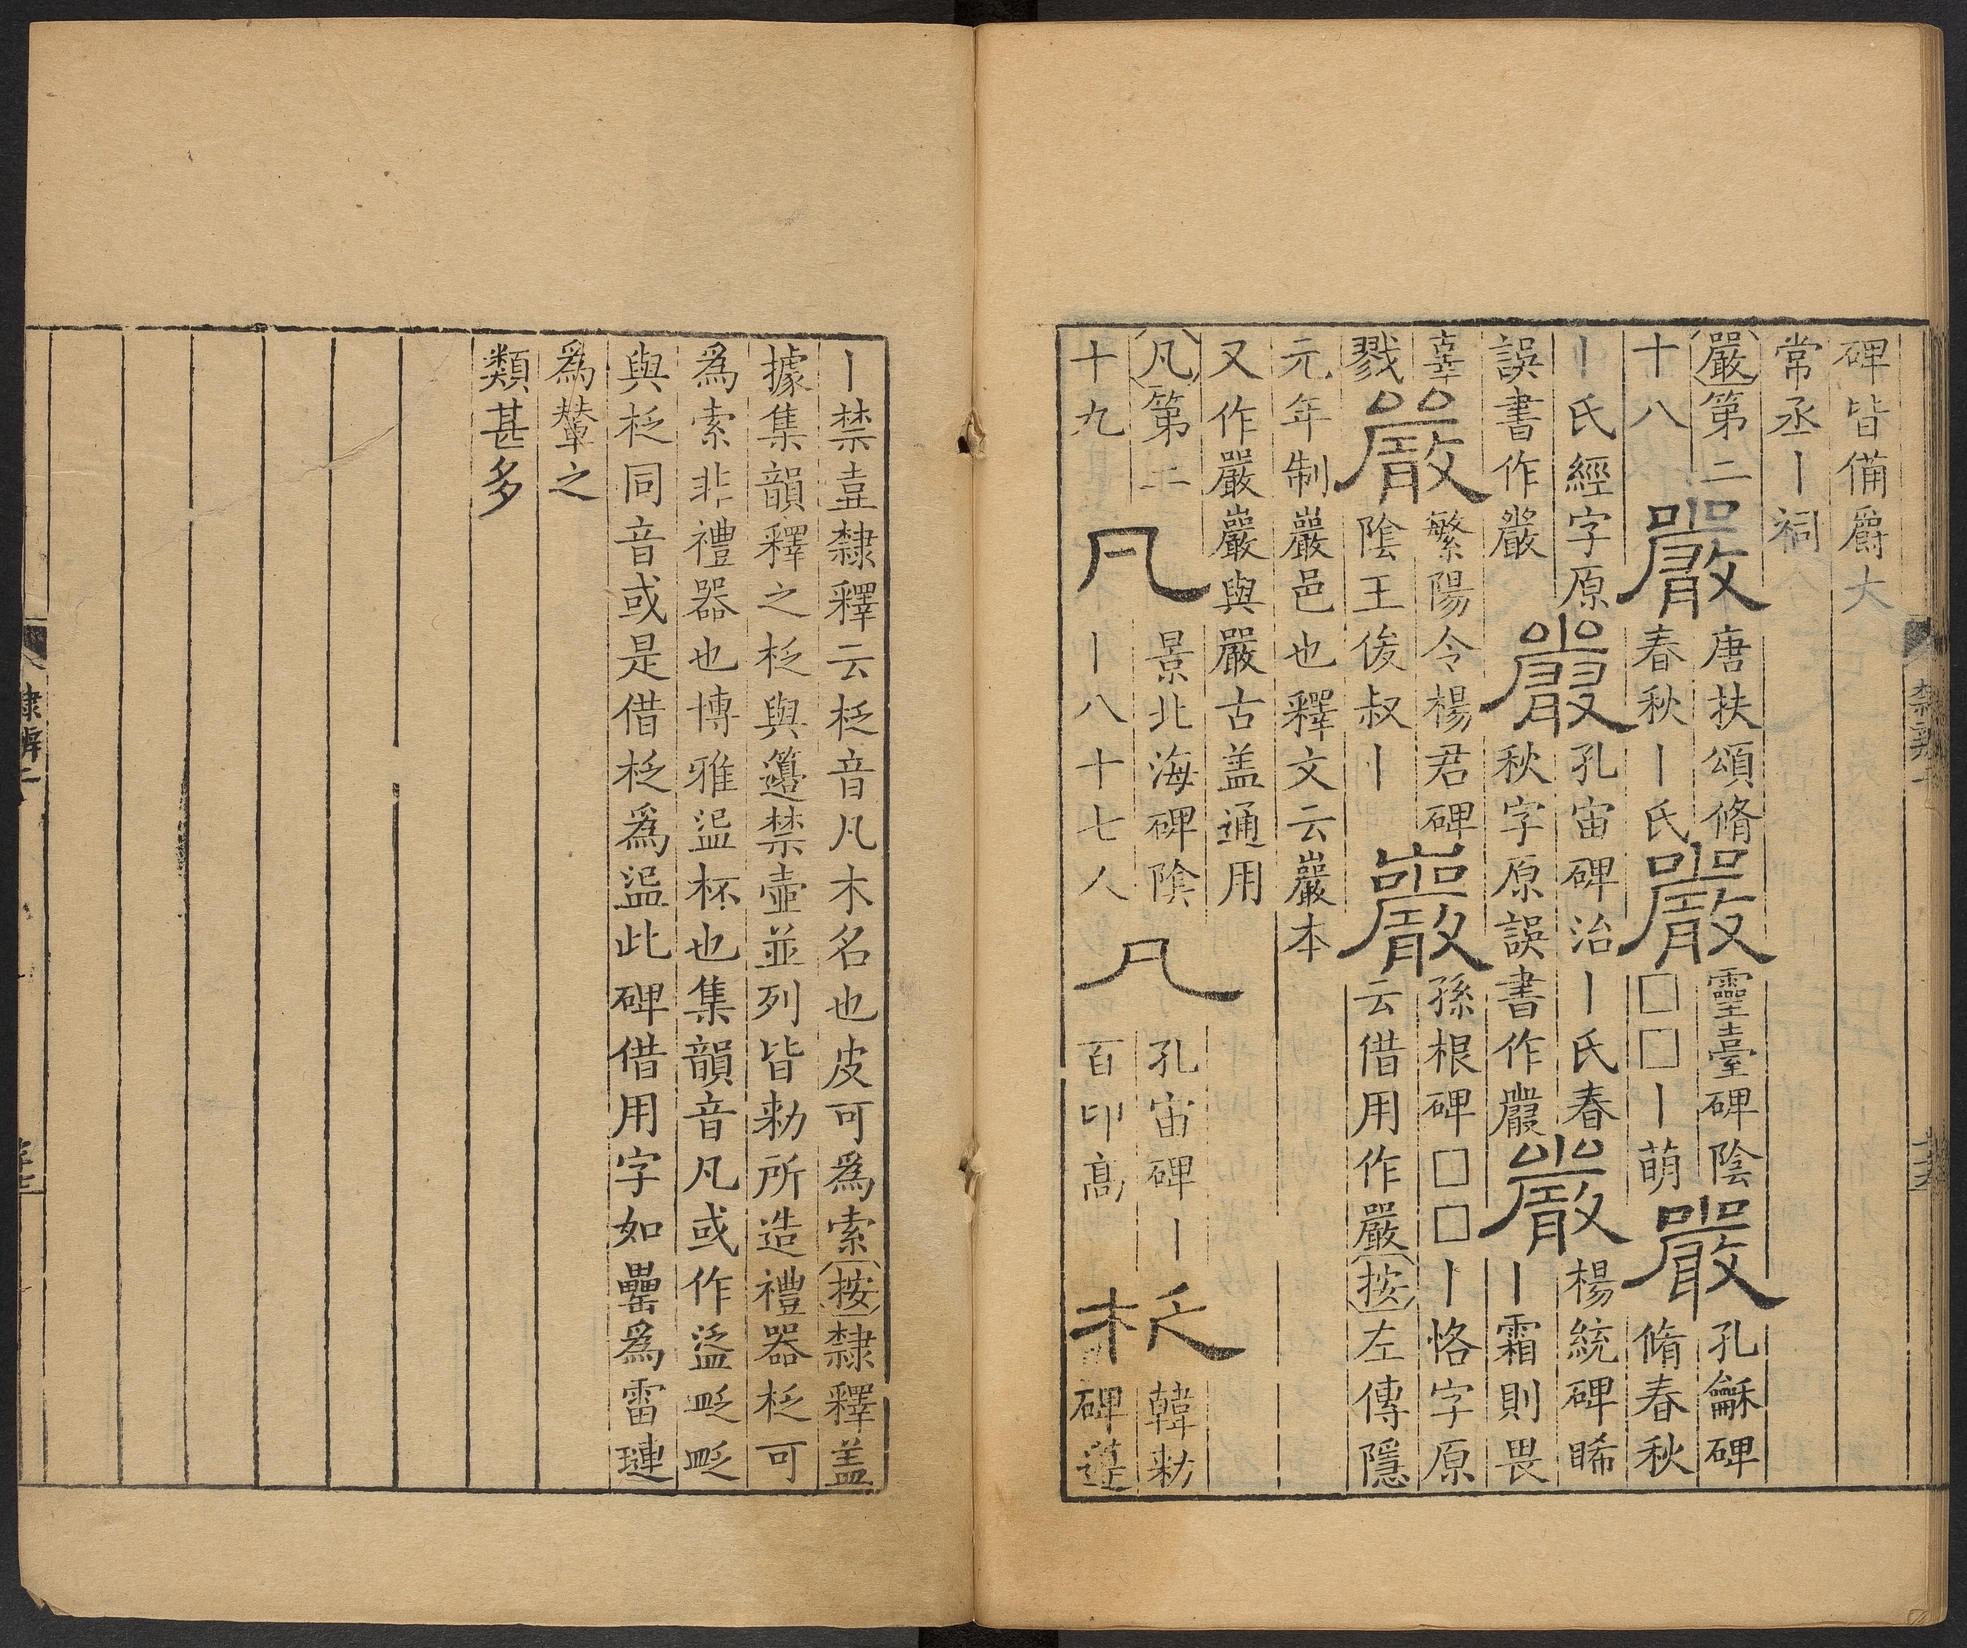 碑皆備爵大
常丞丨祠
嚴第二
十八
嚴
唐扶頌脩
春秋丨氏
嚴
靈臺碑陰
□□丨萌
嚴
孔龢碑
脩春秋
丨氏經字原
誤書作嚴
嚴
孔宙碑治丨氏春
秋字原誤書作嚴
嚴
楊統碑睎
丨霜則畏
辜
戮
嚴
繁陽令楊君碑
陰王俊叔丨
嚴
孫根碑□□丨恪字原
云借用作嚴按左傳隱
元年制巖邑也釋文云巖本
又作嚴巖與嚴古盖通用
凡第二
十九
凡
景北海碑陰
丨八十七八
凡
孔宙碑丨
百印高
柉
韓勑
碑籩
丨禁壴隸釋云柉音凡木名也皮可爲索按隸釋盖
據集韻釋之柉與籩禁壷並列皆勑所造禮器柉可
爲索非禮器也博雅㿽杯也集韻音凡或作盕㼹㼹
與柉同音或是借柉爲㿽此碑借用字如罍爲雷璉
爲輦之
類甚多
隸辨二